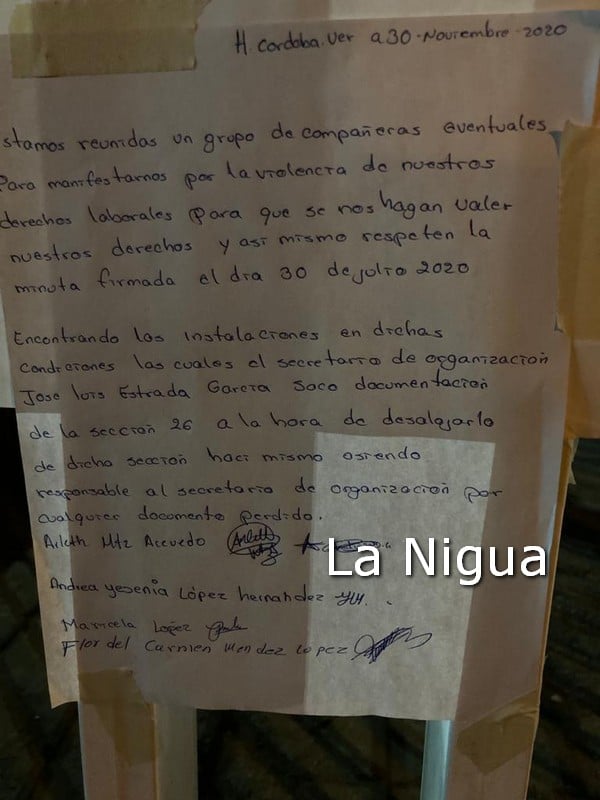 H. cordoba. Ver a 30-Noviembre-2020
stamos reunidas un grupo de compañeras eventuales
Para manifestarnos por la violencia de nuestros
derechos laborales para que se nos hagan valer
nuestros derechos y asi mismo respeten la
minuta firmada el dia 30 de julio 2020
Encontrando las instalaciones en dichas
condiciones las cuales el secretario de organización
Jose luis Estrada Garcia Saco documentación
de la sección 26 a la hora de desalojarlo
de dicha sección haci mismo asiendo
responsable al secretario de organización por
cualquier documento perdido.
Arleth Mtz Acevedo
La Nigua
Andrea yesenia López hernandez
Maricela López
Flor del Carmen Mendez López